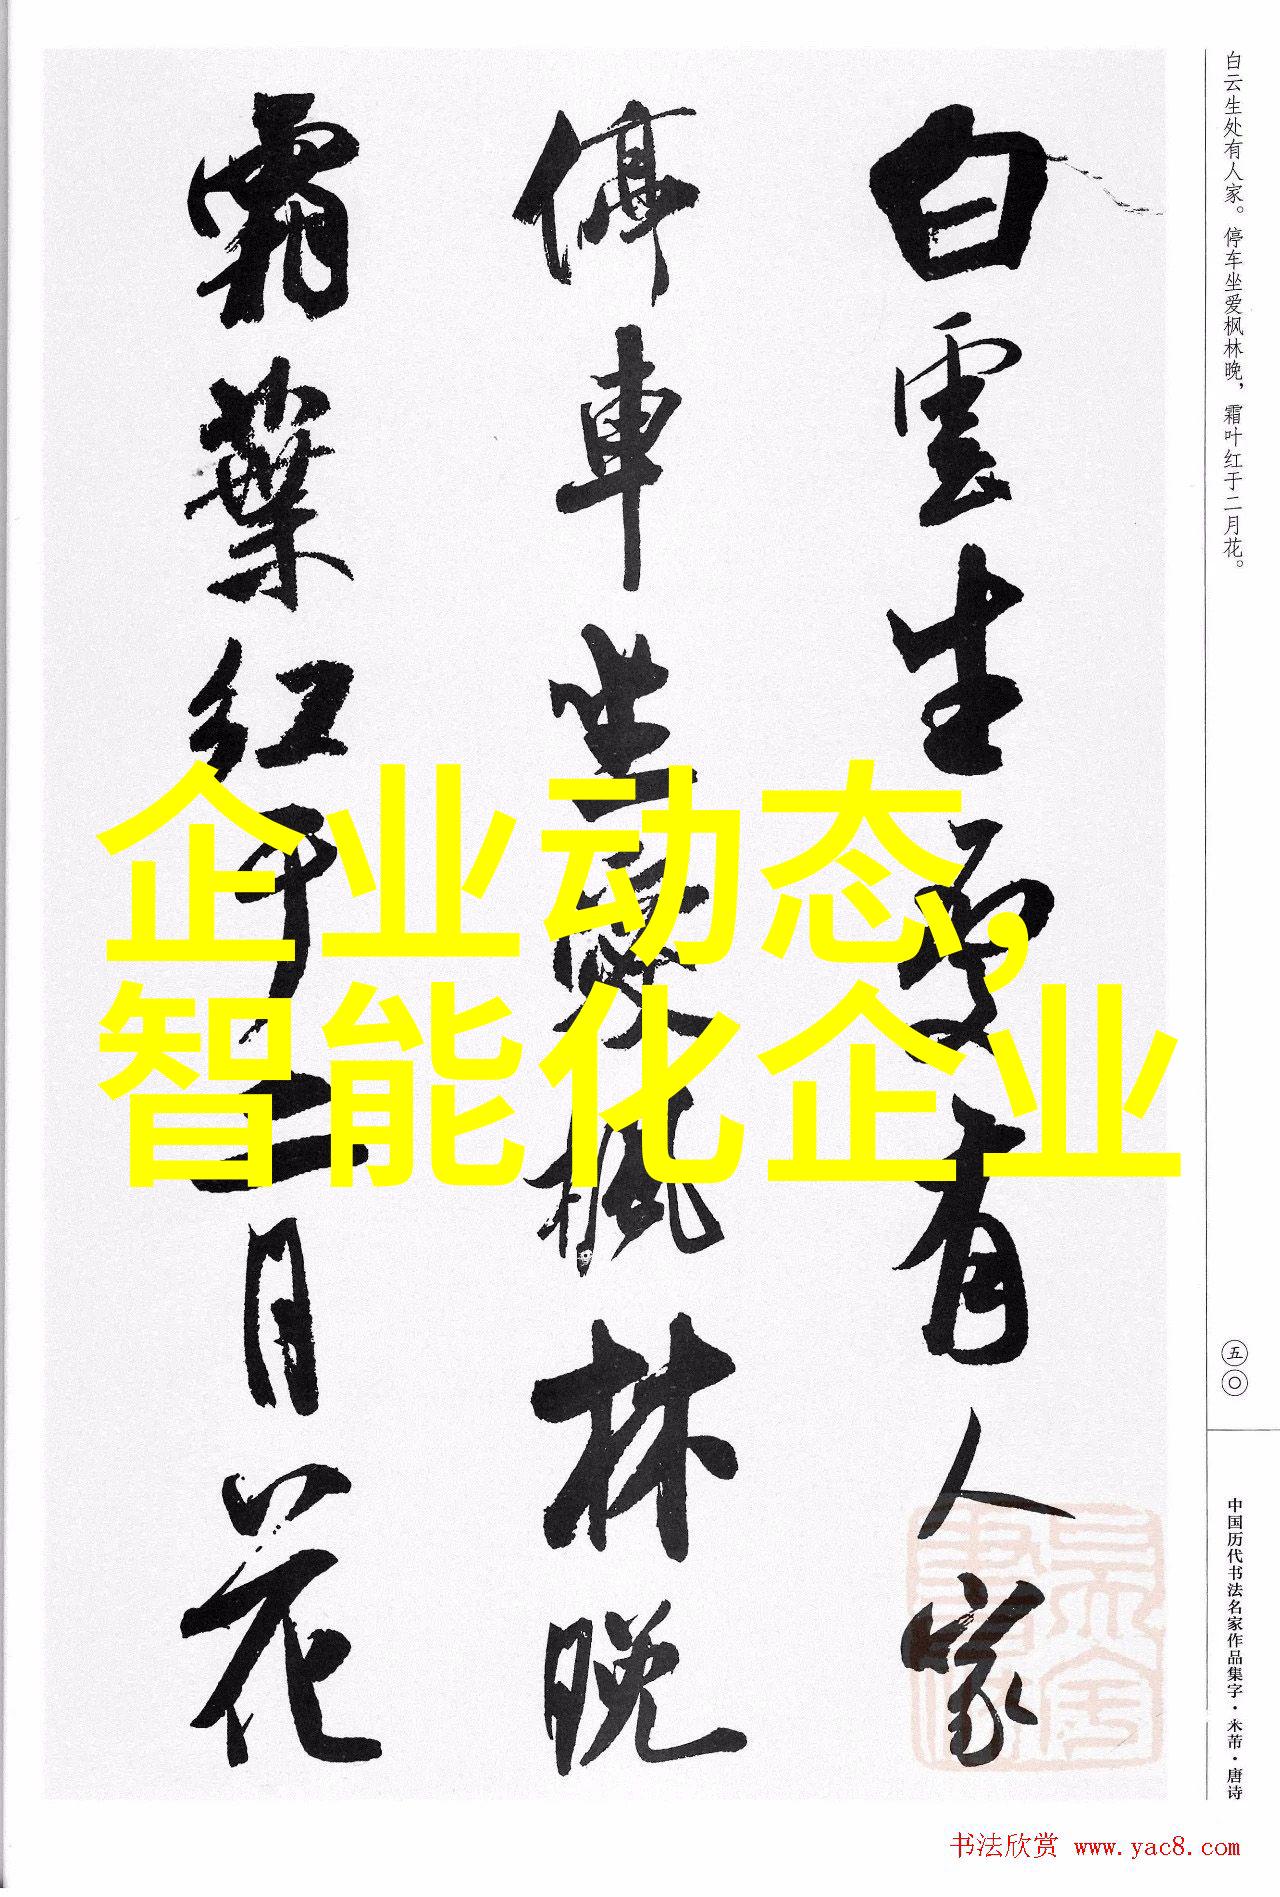 白雲生處有人家
停車坐愛楓林晚
霜葉红于二月花
企业动态,
智能化企业
白云生处有人家。停车坐爱枫林晚，霜叶红于二月花。
五〇
中国历代书法名家作品集字·米芾·唐诗
书法欣赏 www.yac8.com